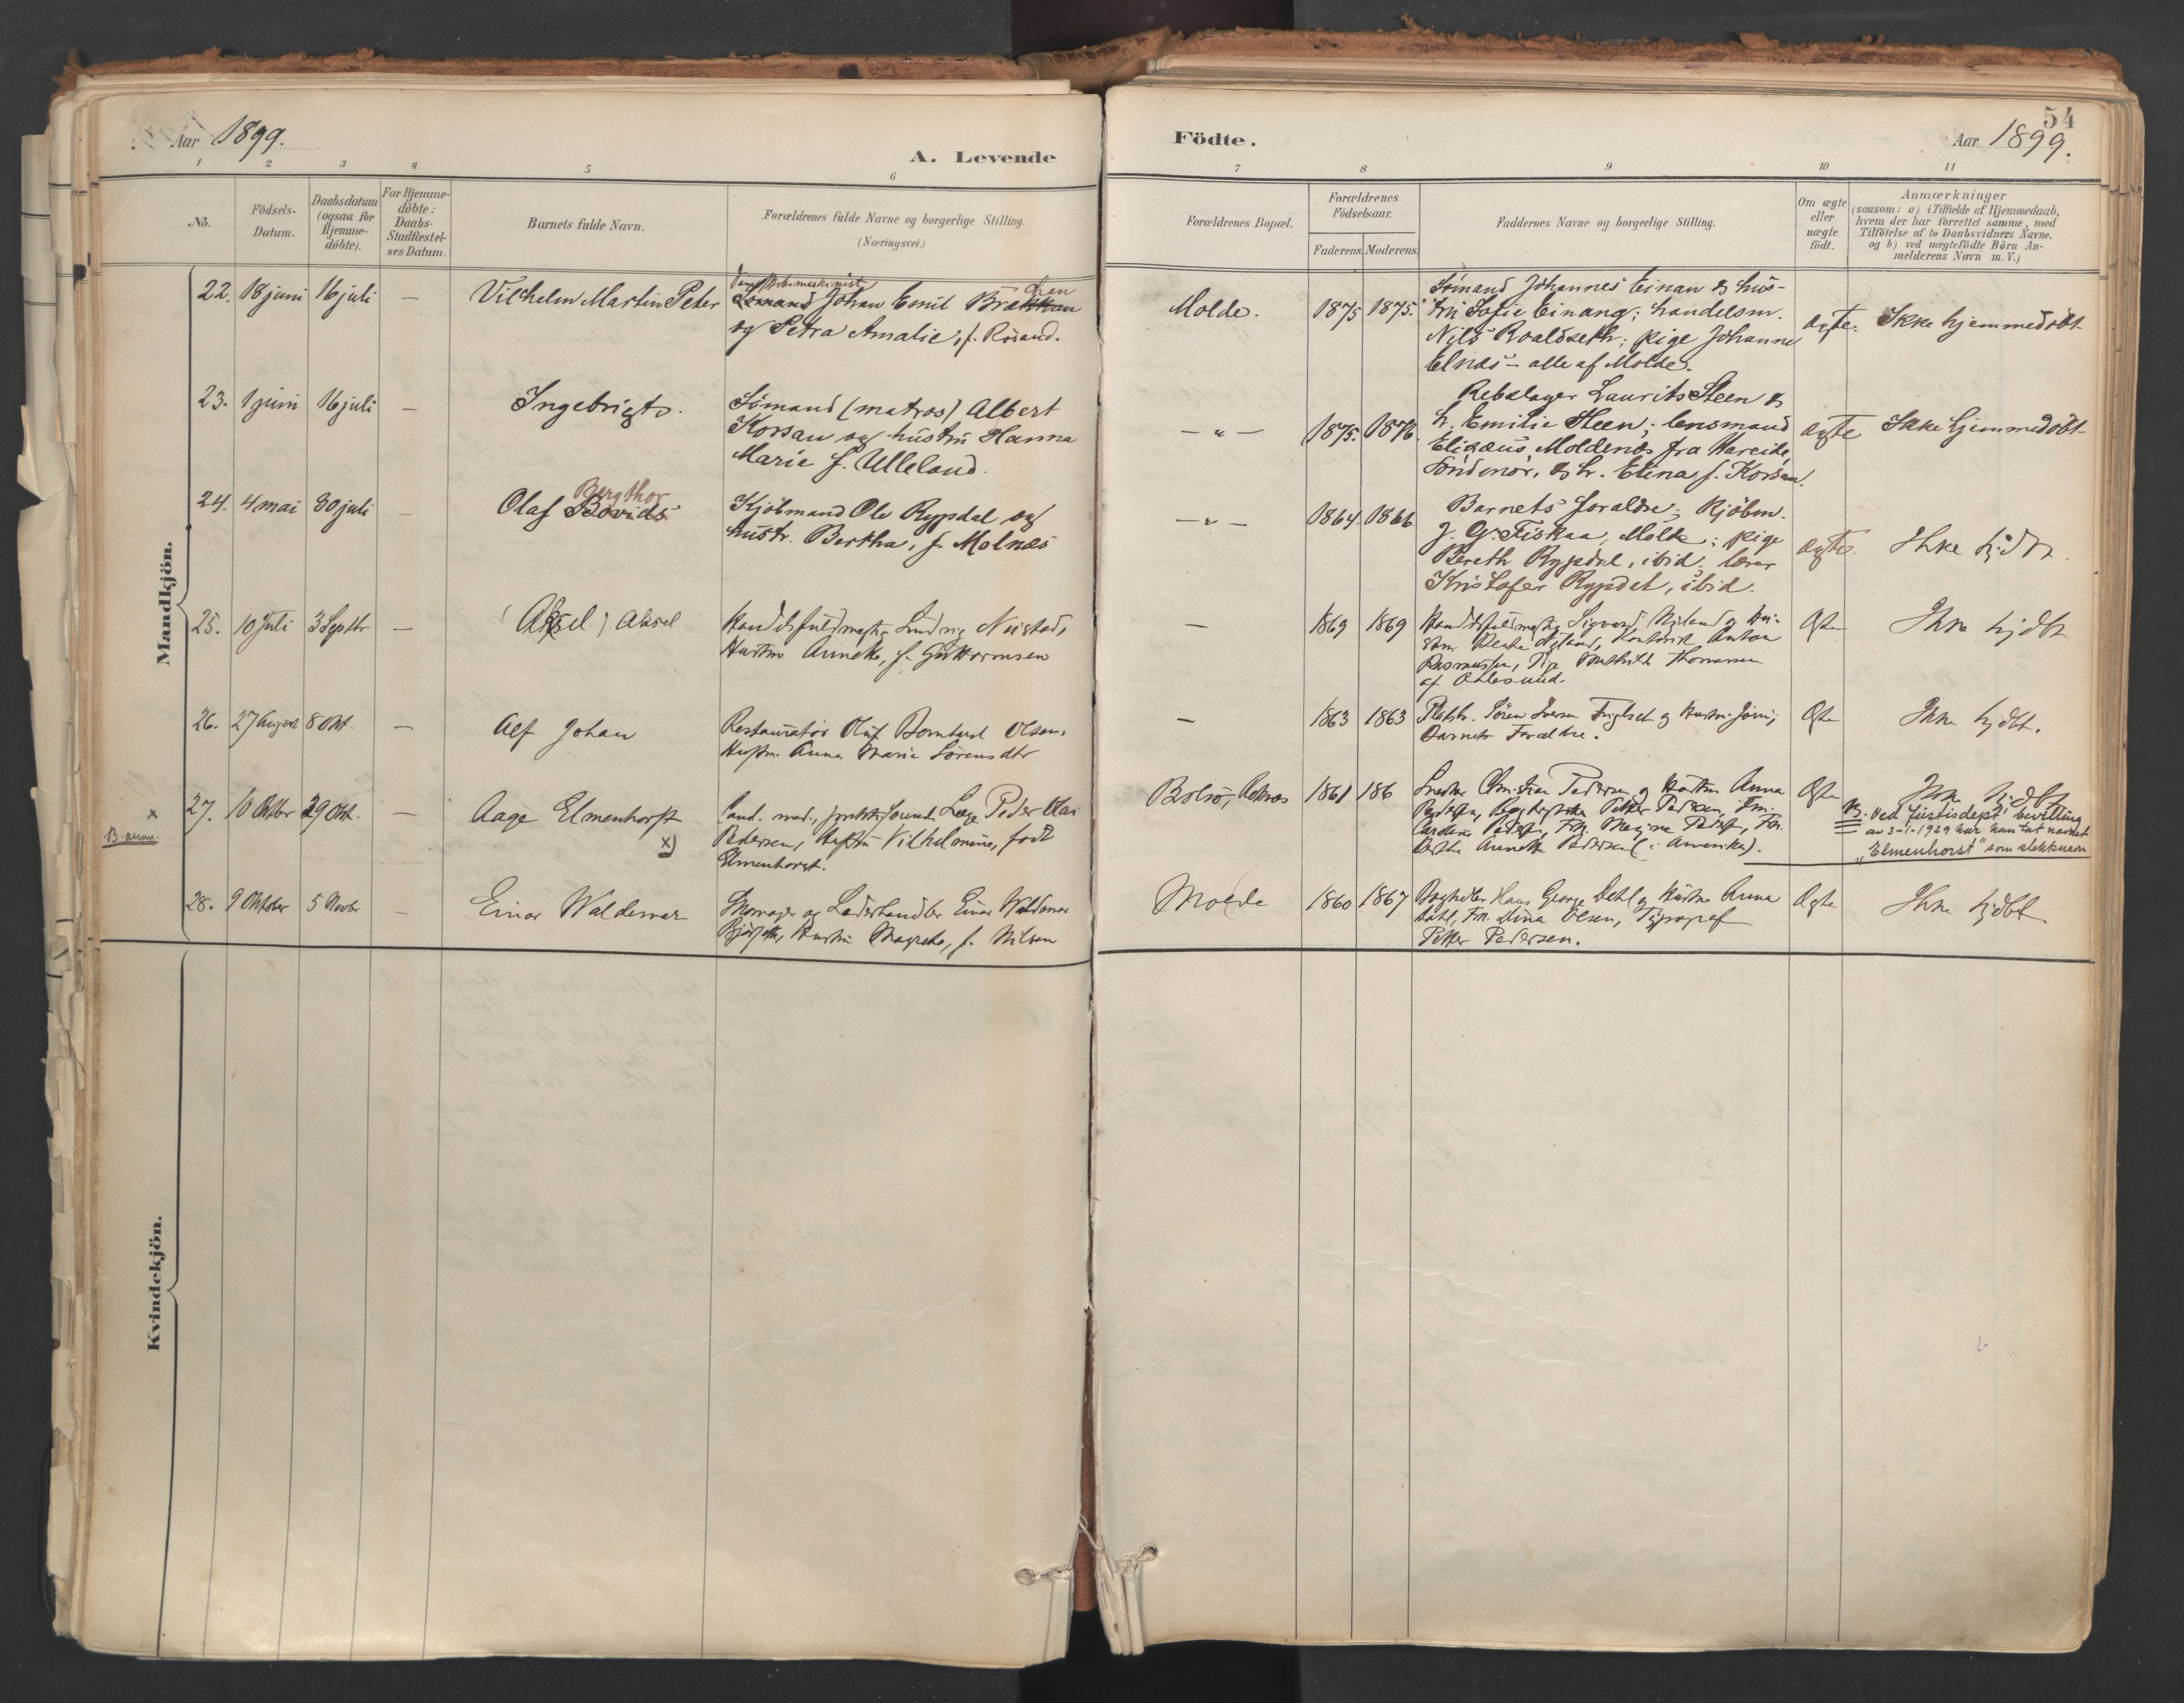 Aar 1899.
A. Levende
Födte.
Aar 1899.
54
1 2 3 4 5 6 7 8 9 10 11
No.
Födsels-
Datum.
Daabsdatum
(ogsaa for
Hjemme-
döbte).
For Hjemme-
döbte:
Daabs-
Stadfæstel-
ses Datum.
Barnets fulde Navn.
Forældrenes fulde Navne og borgerlige Stilling.
(Næringsvei.)
Forældrenes Bopæl.
Forældrenes
Födselsaar.
Faderens. Moderens.
Faddernes Navne og borgerlige Stilling.
Om ægte
eller
uægte
födt.
Anmærkninger
(saasom: a) i Tilfælde af Hjemmedaab,
hvem der har forrettet samme, med
Tilföielse af to Daabsvidners Navne,
og b) ved uægtefödte Börn An-
melderens Navn m. V.)
Mandkjön.
22. 18 juni 16 juli — Vilhelm Martin Peter
Sömand Johan Emil
og Petra Amalie, f. Rösand.
Molde. 1875 1875.
Sömand Johannes Einan og hus-
tru Sofie Einang; handelsm.
Nils Roaldseth; pige Johanne
Elnæs – alle af Molde.
ægte. Ikke hjemmedöbt
23. 1 juni 16 juli — Ingebrigt.
Sömand (matros) Albert
Korsan og hustru Hanna
Marie f. Ulleland.
— " — 1875. 1876.
Rebslager Laurits Steen og
h. Emilie Steen; lensmand
Moldenæs fra Hareide,
Söndmör, og h. Elina, f. Korsan.
ægte Ikke hjemmedöbt
24. 4 mai 30 juli — Olaf
Bergthor
Kjöbmand Ole Rypdal og
hustr. Bertha, f. Molnæs
— " — 1864. 1866
Barnets foraldre; Kjöbm.
J. G. Fiskaa, Molde; pige
Bereth Rypdal, ibid; lærer
Kristofer Rypdal, ibid.
ægte. Ikke hjdbt.
25. 10 Juli 3 Septbr — (Aksel) Aksel
Ludvig Neustad,
Hustru Annette, f. Guttormsen
— 1869 1869
Rasmussen, Pige Thomassen
af Aalesund.
Ægte Ikke hjdbt
26. 27 August 8 Okt. — Alf Johan
Restauratör Oluf Bernhard Olsen,
Hustru Anna Marie Sörensdtr
— 1863 1863
Sören Iversen og Hustru
Barnets Forældre.
Ægte Ikke hjdbt.
x
B. anm.
27. 10 Oktbr 29 Okt. — Aage Elmenhorst
x)
Cand. med., Læge Peder Olai
Pedersen, Hustru Vilhelmine, födt
Elmenhorst.
Bolsö, 1861 186
Christian Pedersen og Hustru Anna
Petter Pedersen,
Annette Pedersen (i Amerika).
Ægte Ikke hjdbt
B. Ved justisdept's bevilling
av 3-1-1929 har han tat navnet
„Elmenhorst" som slektsnavn
28. 9 Oktober 5 Novbr — Einar Waldemar
Skomager og Læderhandler Einar Waldemar
Hustru Magrete, f. Nilsen
Molde 1860 1867
Bogholder Hans George Dahl og Hustru Anna
Dahl, Frk. Olsen, Typograf
Petter Pedersen.
Ægte Ikke hjdbt.
Kvindekjön.